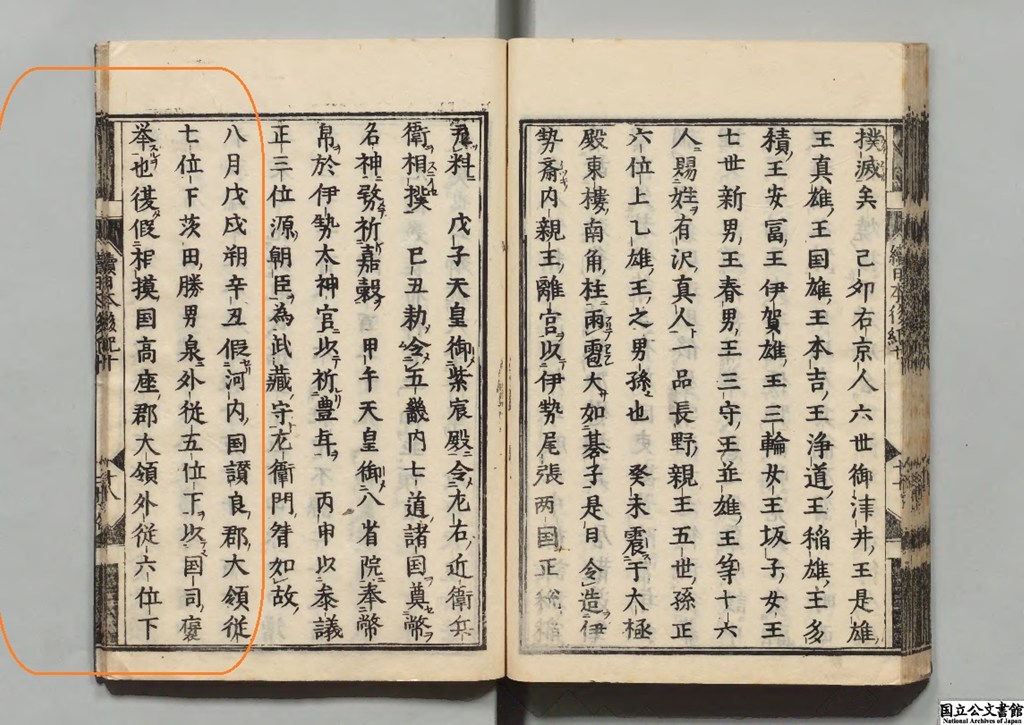 撲滅矣　己卯右京人六世御津井王是雄
王真雄王国雄王本吉王浄道王稲雄王多
積王安冨王伊賀雄王三輪女王坂子女王
七世新男王春男王三守王並雄王等十六
人賜姓有沢真人一品長野親王五世孫正
六位上乙雄王之男孫也　癸未震于大極
殿東樓南角柱雨雹大如碁子是日令造伊
勢斎内親王離宮以伊勢尾張両国正税
料　戊子天皇御紫宸殿令左右近衛兵
衛相撲　己丑勅令五畿内七道諸国奠幣
名神務祈嘉穀　甲午天皇御八省院奉幣
帛於伊勢太神宮以祈豊年　丙申以参議
正三位源朝臣為武蔵守左衛門督如故
八月戊戌朔辛丑仮河内国讃良郡大領従
七位下茨田勝男泉外従五位下以国司褒
挙也復仮相摸国高座郡大領外従六位下
續日本後紀十
國立公文書館
National Archives of Japan